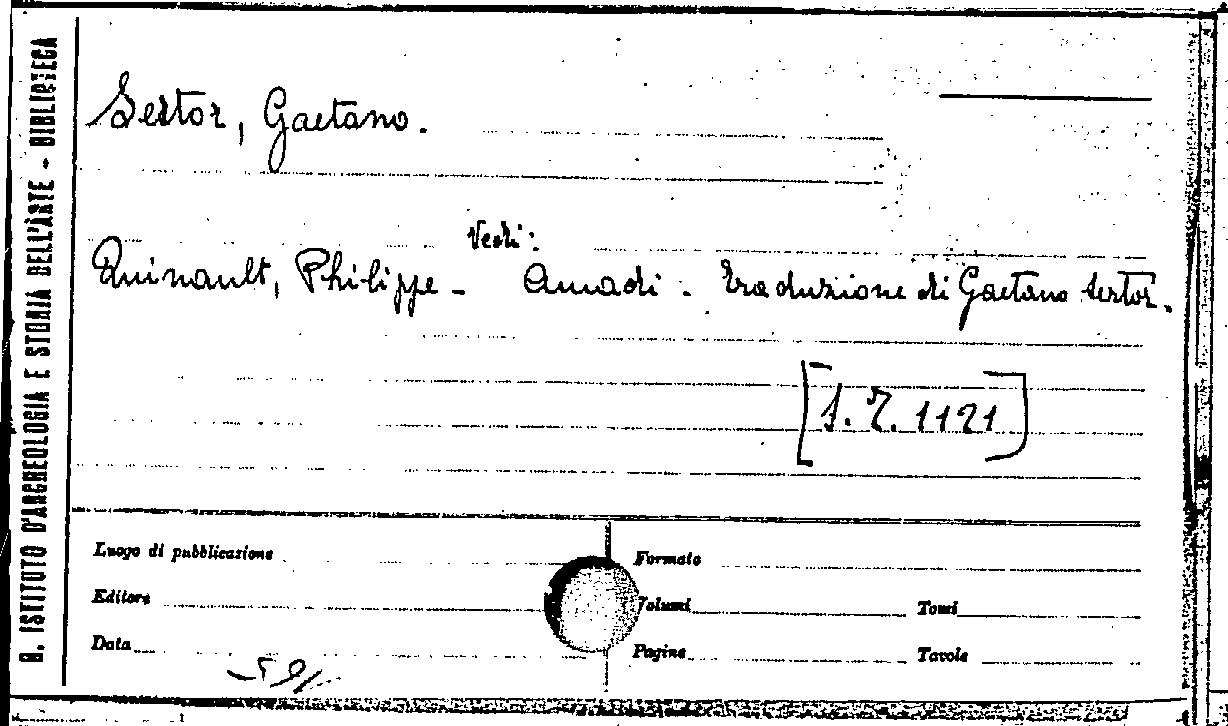 R. ISTITUTO D'ARCHEOLOGIA E STORIA DELL'ARTE - BIBLIOTECA
Sertor, Gaetano.
Vedi:
Quinault, Philippe - Amadi. Traduzione di Gaetano Sertor.
[S.R. 1121]
Luogo di pubblicazione
Formato
Editore
Volumi
Tomi
Data
Pagine
Tavole